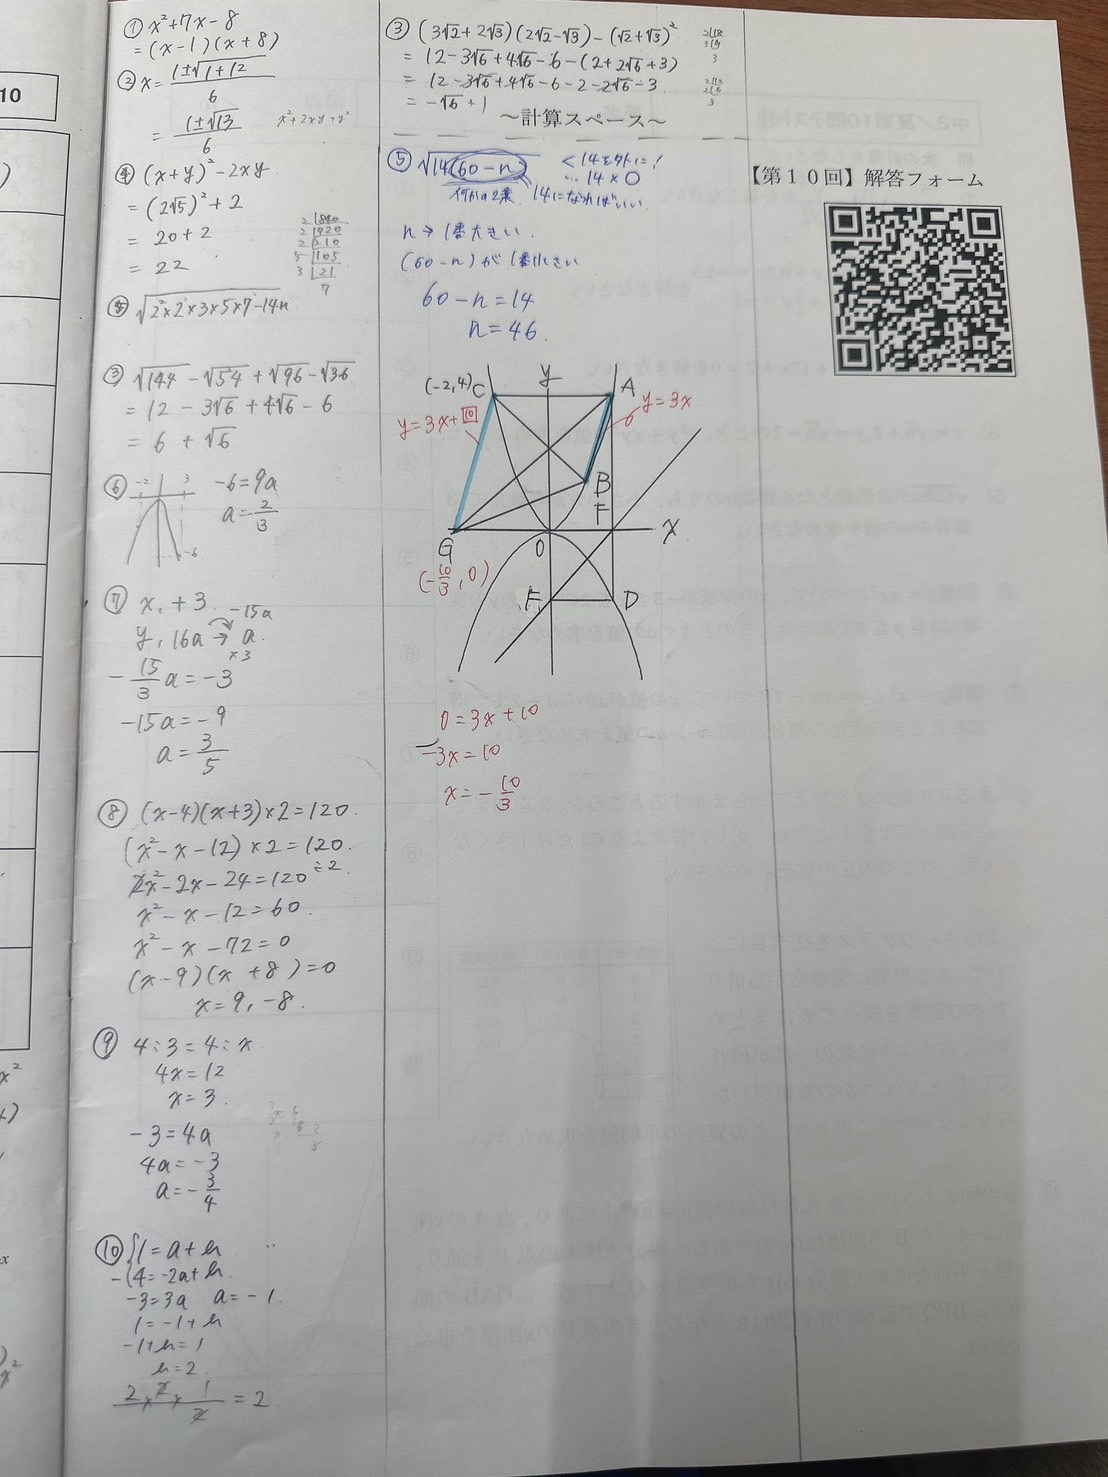 ① x²+7x-8
=(x-1)(x+8)
② x=1±√1+12/6
=1±√13/6
x²+2xy+y²
④ (x+y)²-2xy
=(2√5)²+2
= 20+2
= 22
2 840
2 420
2 210
5 105
3 21
7
⑤ √2²×2×3×5×7-14n
③ √144-√54+√96-√36
= 12-3√6+4√6-6
= 6+√6
⑥ -2 3
-6
-6=9a
a=-2/3
⑦ x, +3
-15a
y, 16a→a
×3
-15/3a=-3
-15a=-9
a=3/5
⑧ (x-4)(x+3)×2=120
(x²-x-12)×2=120
2x²-2x-24=120 ÷2
x²-x-12=60
x²-x-72=0
(x-9)(x+8)=0
x=9, -8
⑨ 4:3=4:x
4x=12
x=3
-3=4a
4a=-3
a=-3/4
⑩ {1=a+b
-{4=-2a+b
-3=3a a=-1
1=-1+b
-1+b=1
b=2
2×2×1/2=2
③ (3√2+2√3)(2√2-√3)-(√2+√3)²
= 12-3√6+4√6-6-(2+2√6+3)
= 12-3√6+4√6-6-2-2√6-3
= -√6+1
～計算スペース～
⑤ √14(60-n)
<14を外に!
… 14×○
何かの2乗
14になればいい
n→1番大きい
(60-n)が1番小さい
60-n=14
n=46
(-2,4)C
y
A
y=3x+10
y=3x
6
B
F
x
G
O
(-10/3,0)
E
D
0=3x+10
-3x=10
x=-10/3
【第１０回】解答フォーム
10